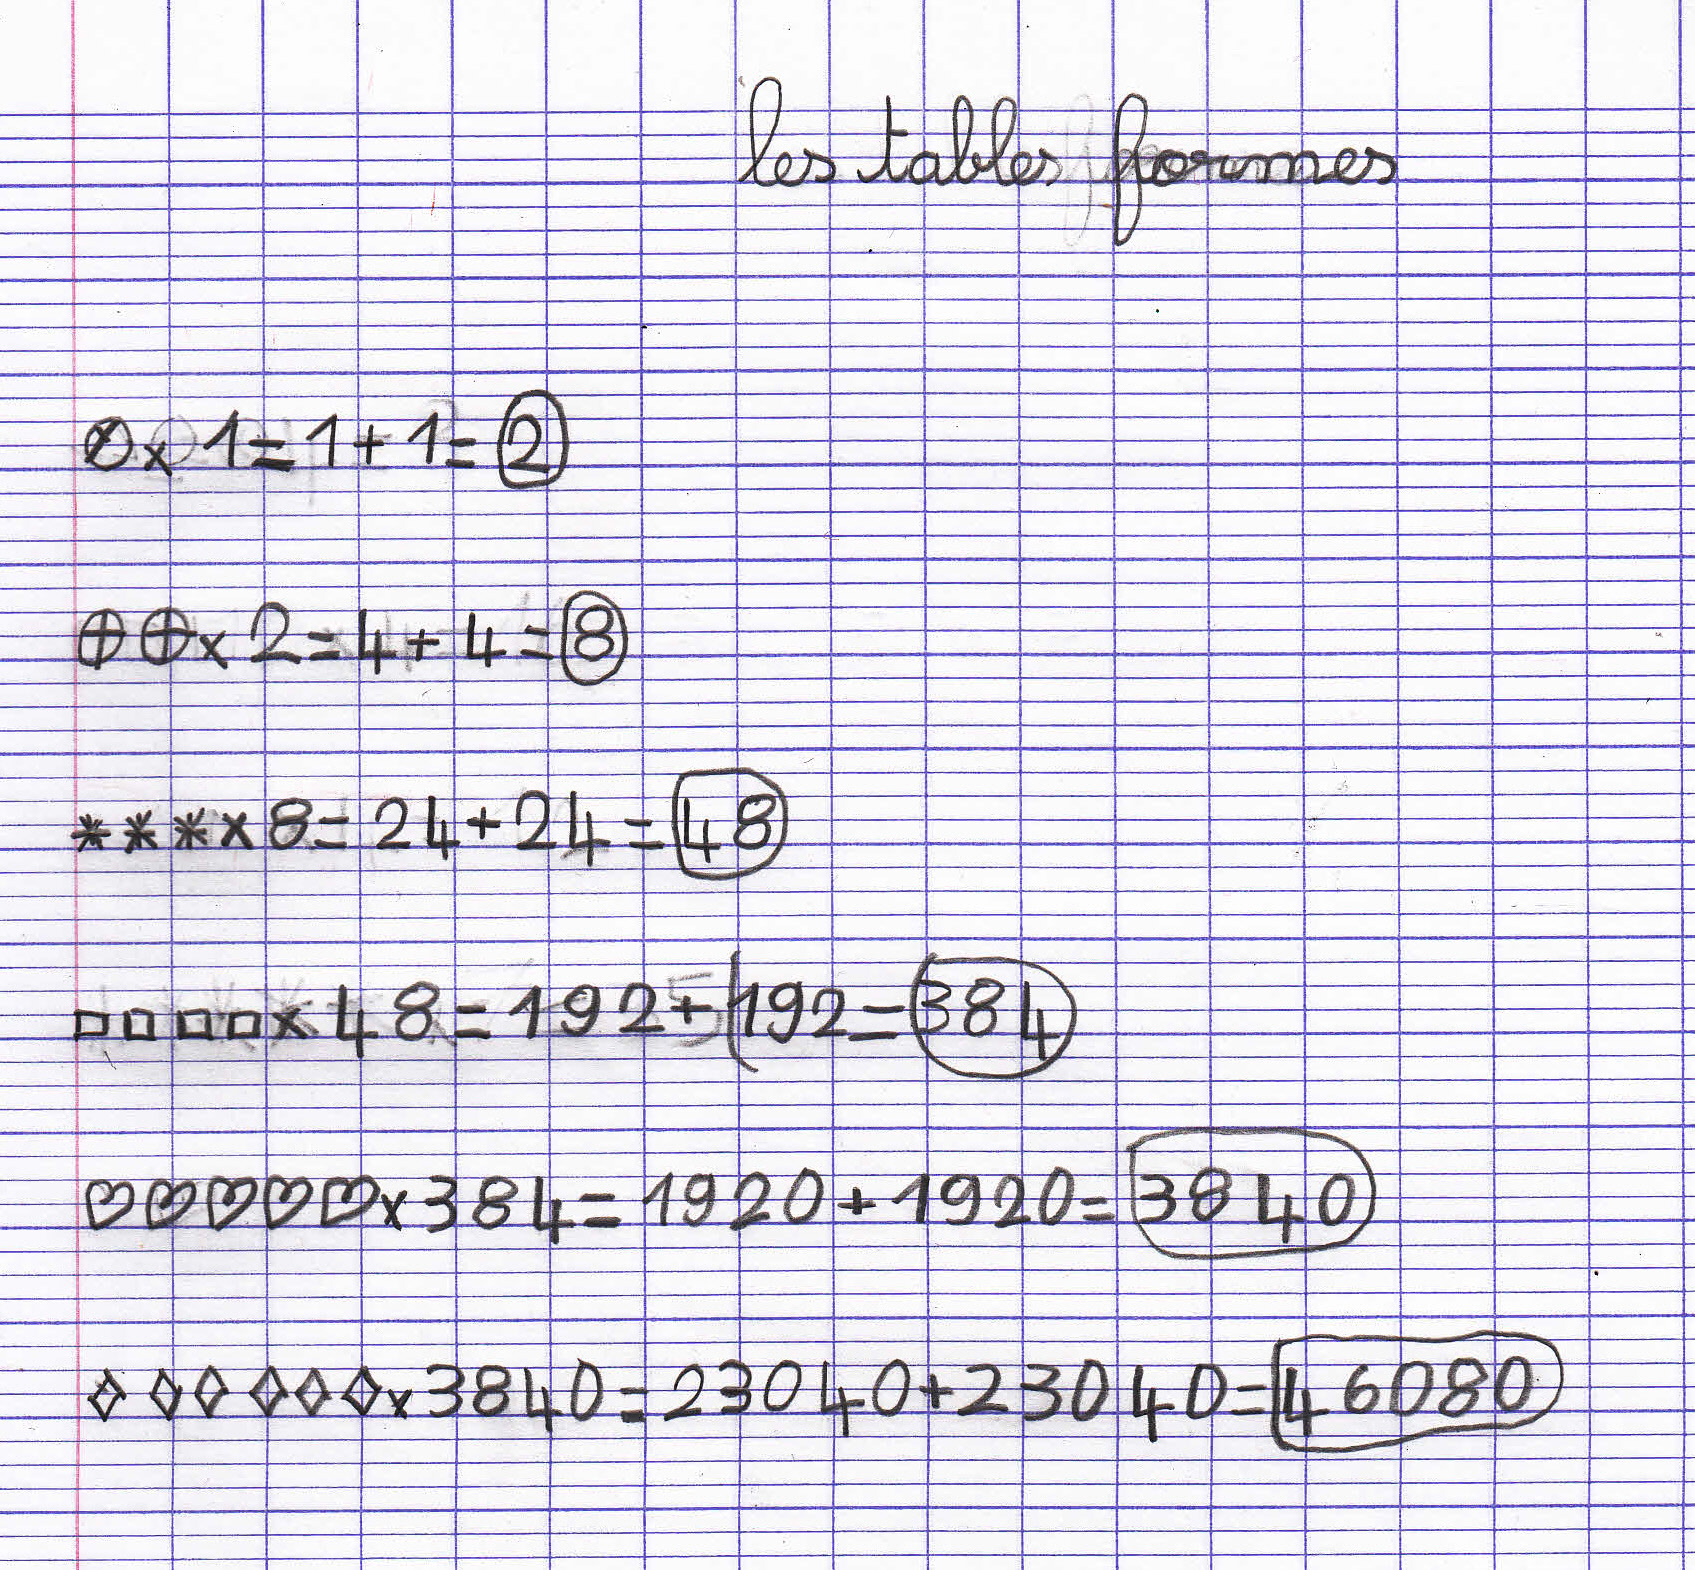 les tables formes
⊘ x 1 = 1 + 1 = 2
⊕ ⊕ x 2 = 4 + 4 = 8
* * * x 8 = 24 + 24 = 48
□ □ □ □ x 48 = 192 + 192 = 384
♡ ♡ ♡ ♡ ♡ x 384 = 1920 + 1920 = 3840
◇ ◇ ◇ ◇ ◇ ◇ x 3840 = 23040 + 23040 = 46080